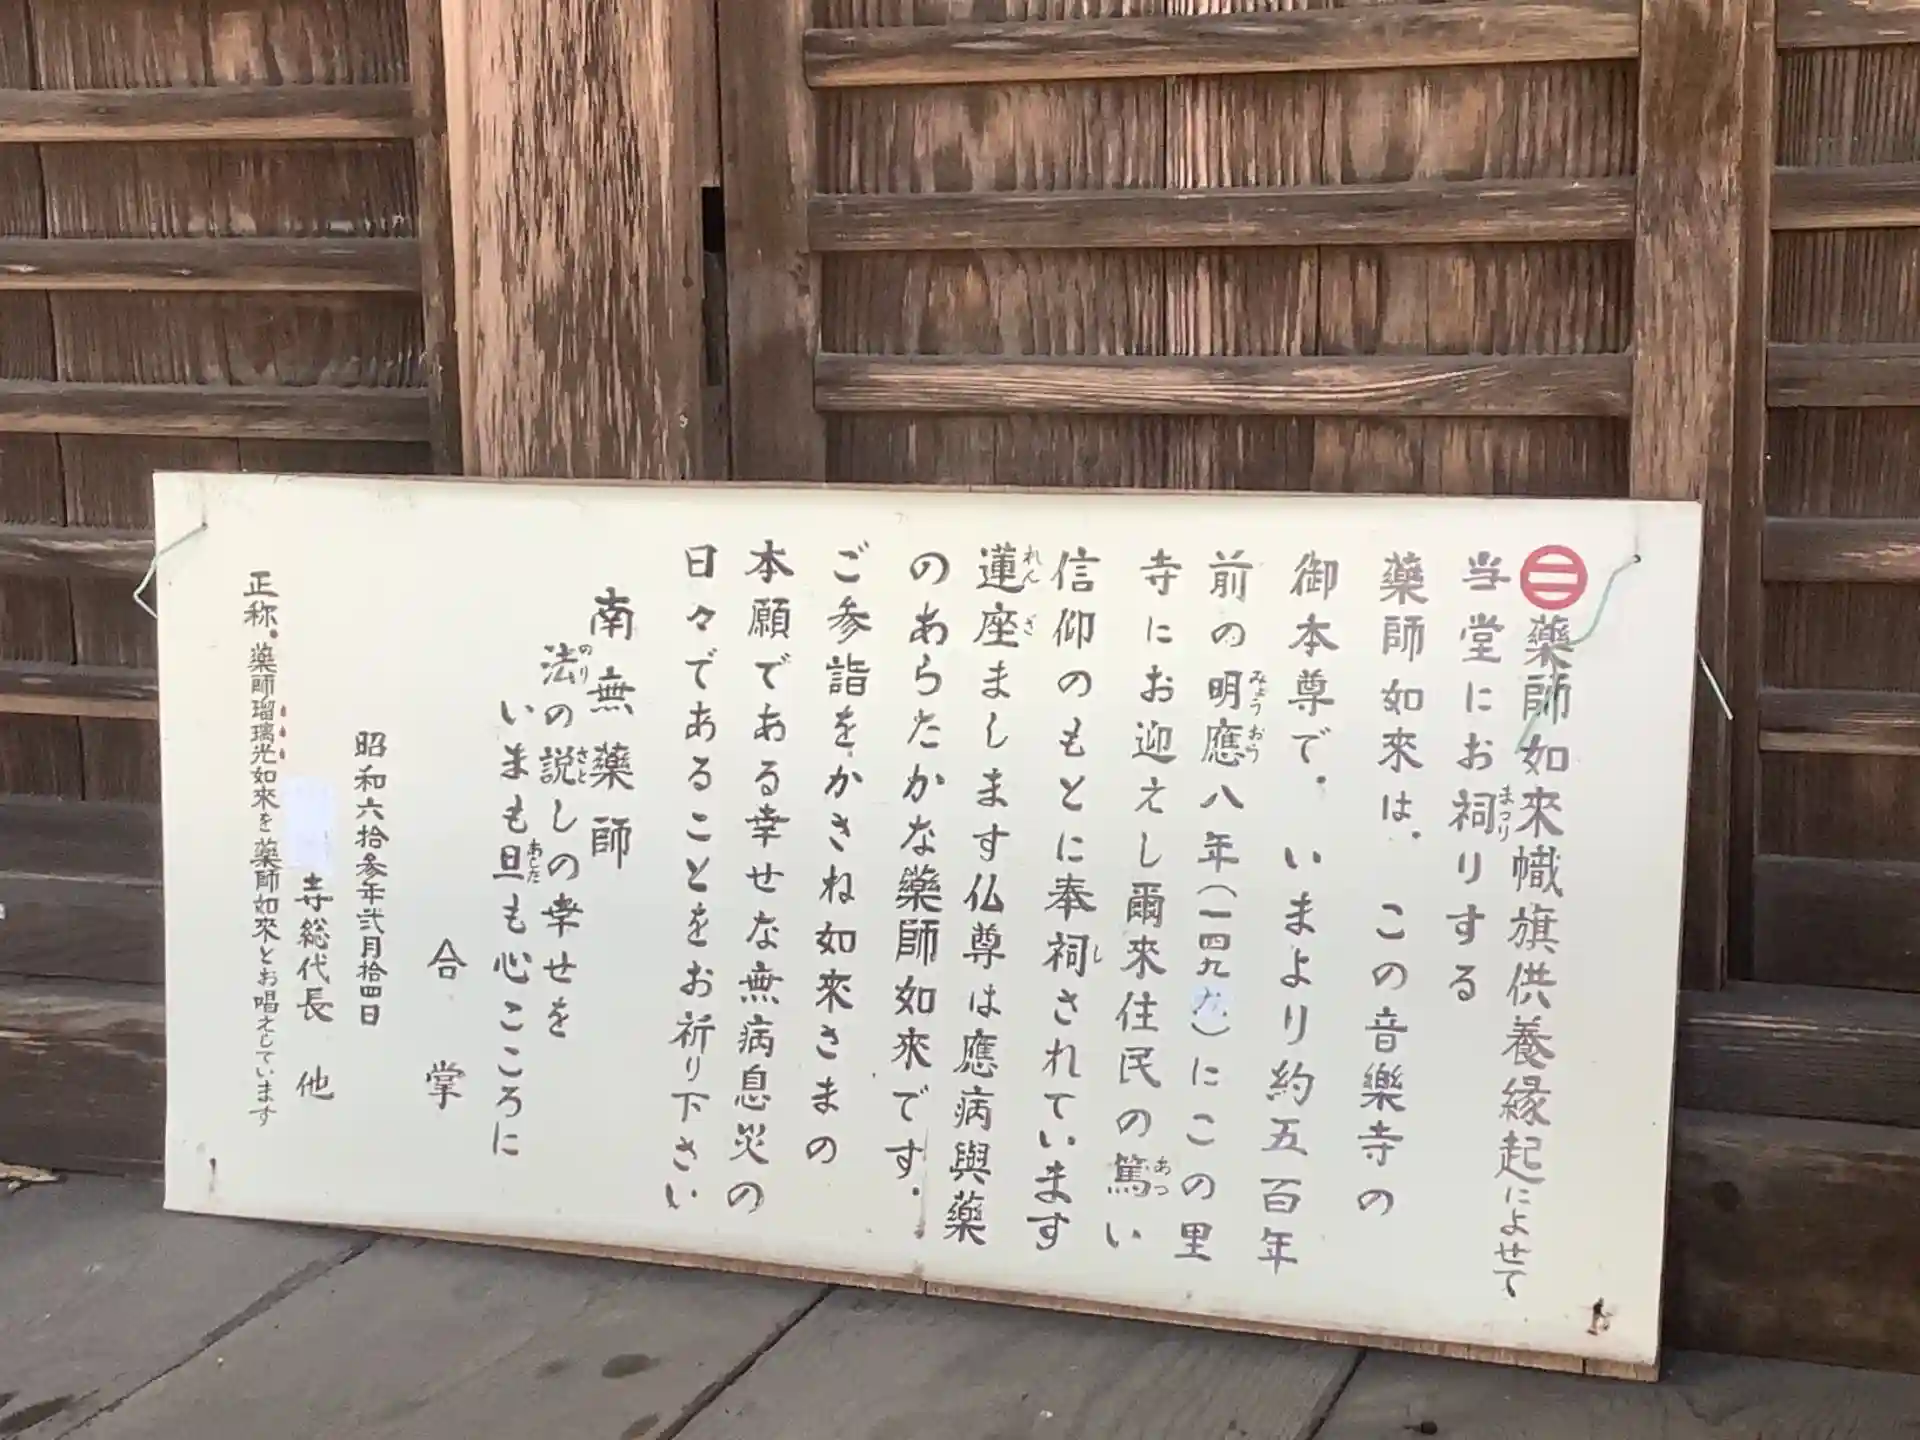 ㊁藥師如來幟旗供養縁起によせて
当堂にお祠りする
藥師如來は、この音樂寺の
御本尊で、いまより約五百年
前の明應八年(一四九九)にこの里
寺にお迎えし爾來住民の篤い
信仰のもとに奉祠されています
蓮座ましします仏尊は應病與藥
のあらたかな藥師如來です。
ご参詣をかさね如來さまの
本願である幸せな無病息災の
日々であることをお祈り下さい
南無藥師
法の説しの幸せを
いまも旦も心こころに
合掌
昭和六拾参年弐月拾四日
寺総代長 他
正称。薬師瑠璃光如來を薬師如來とお唱えしています